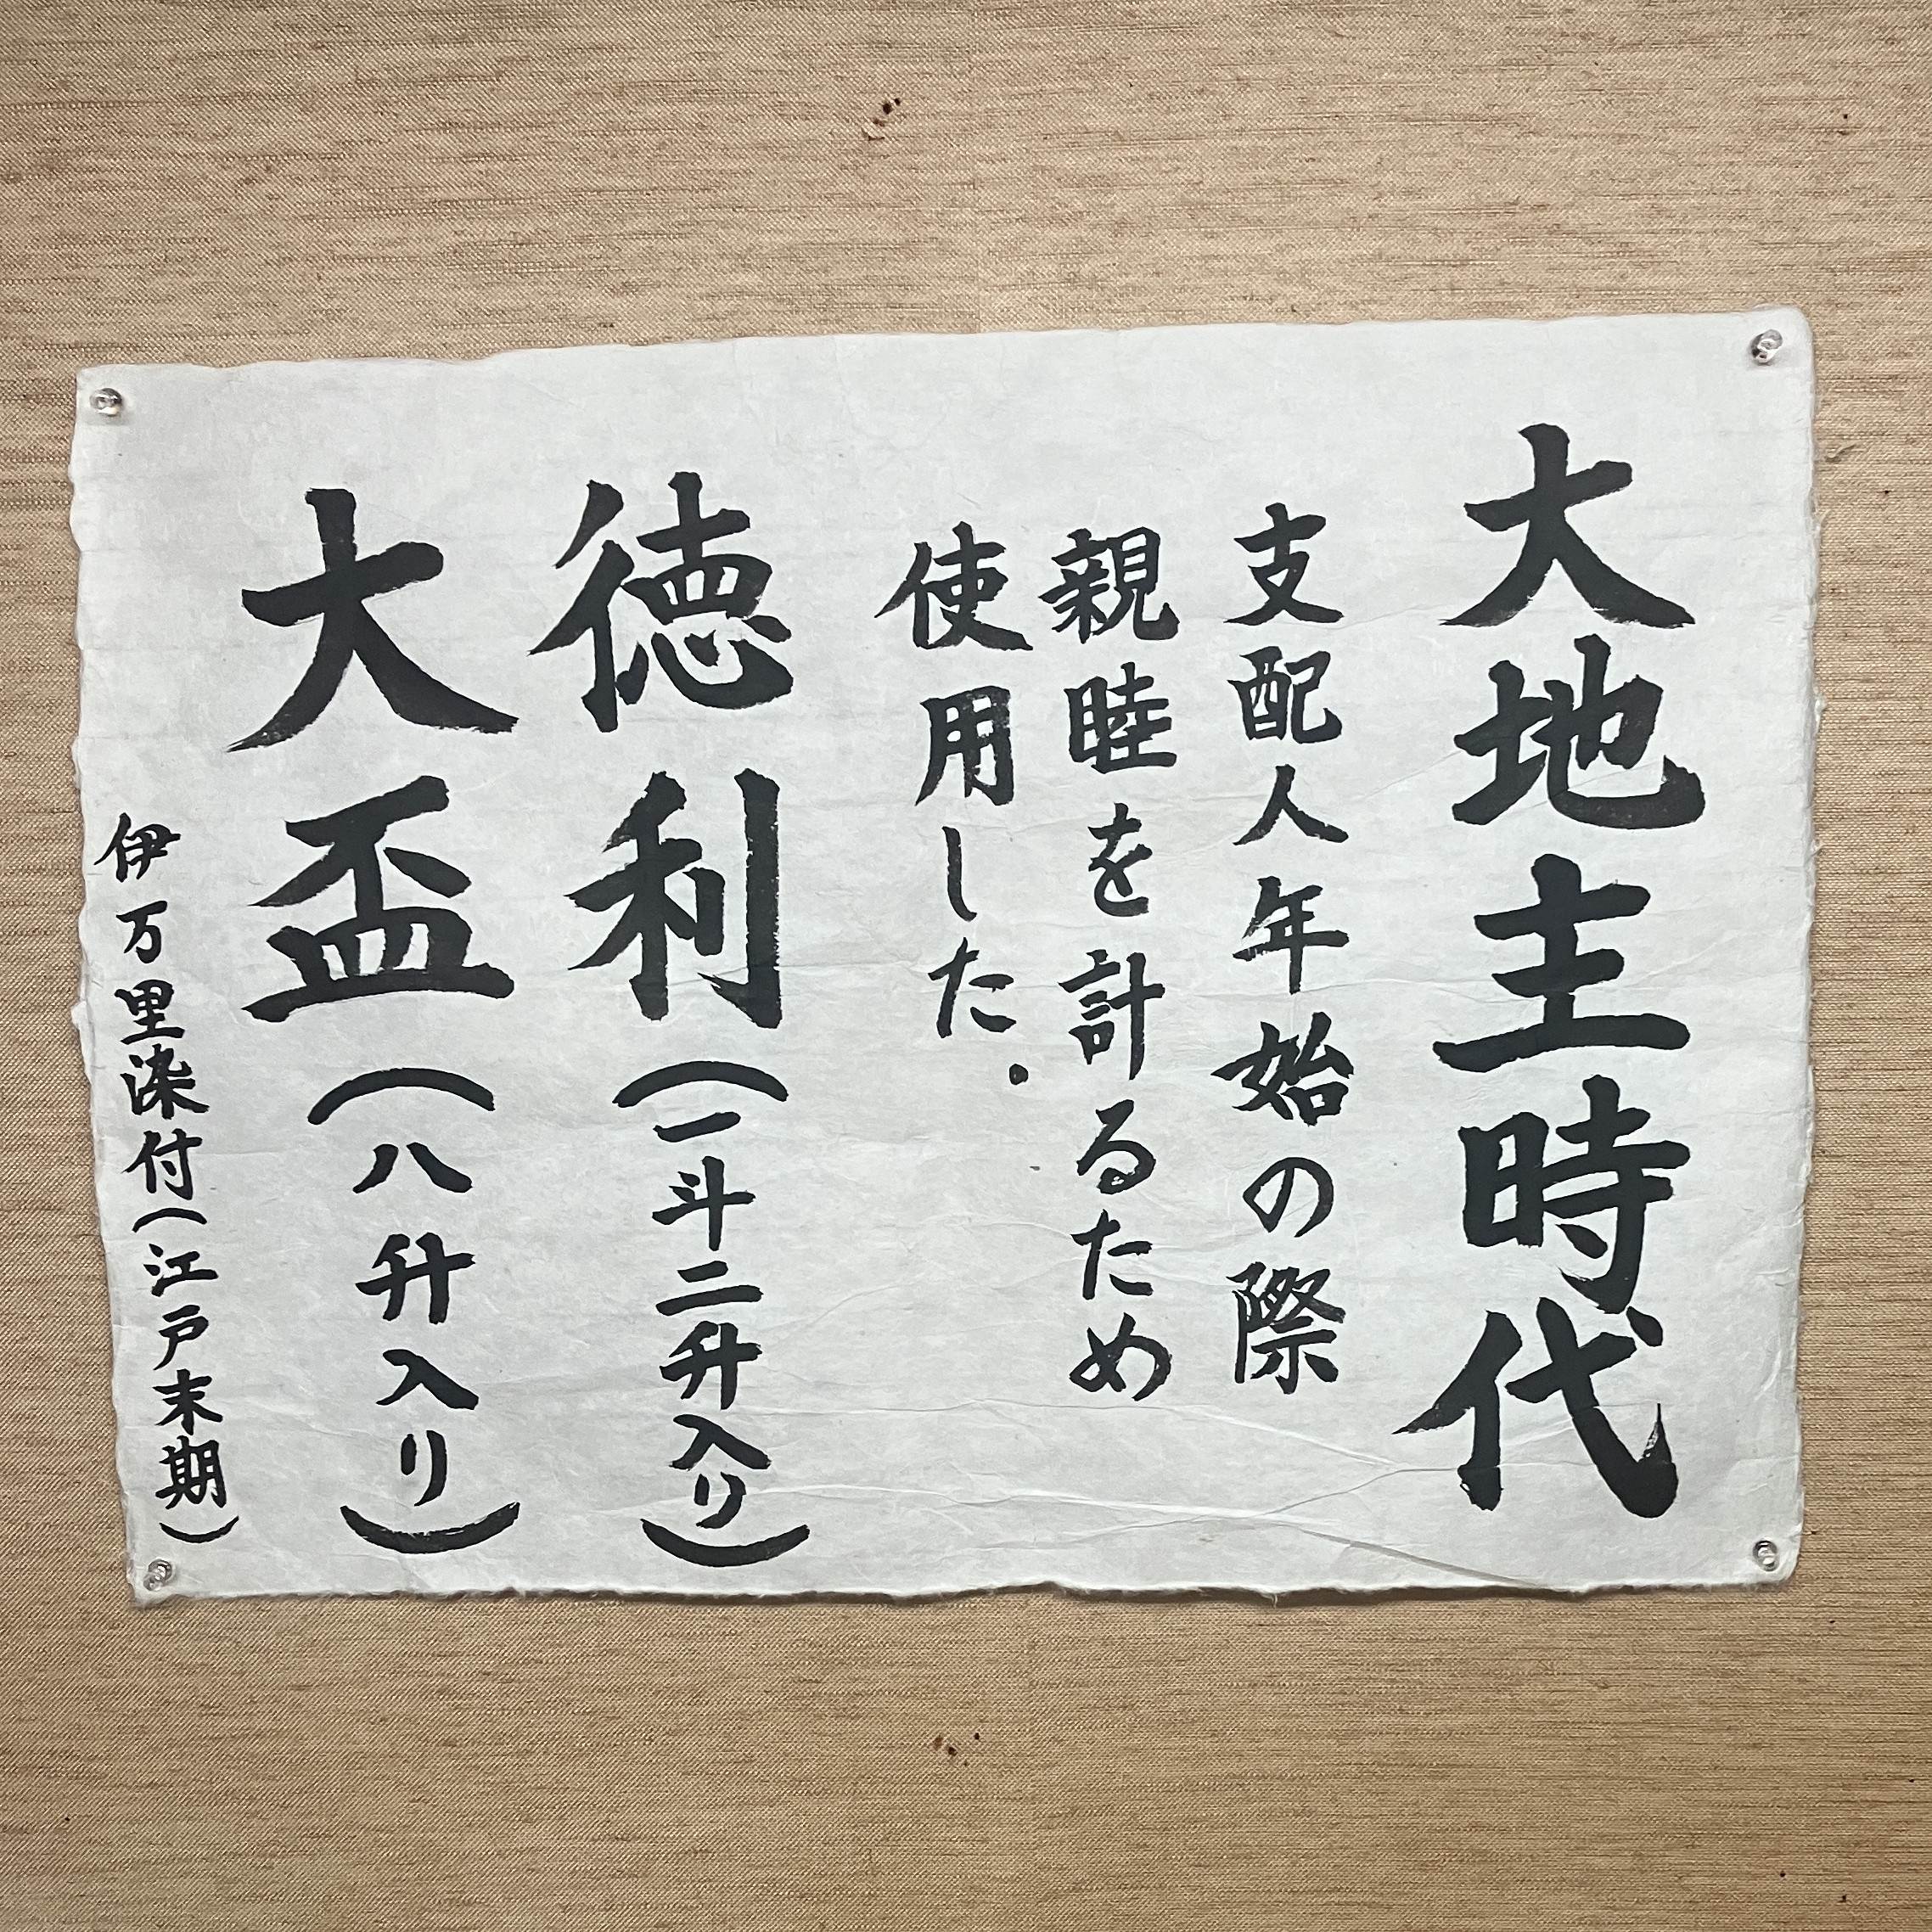 大地主時代
支配人年始の際
親睦を計るため
使用した.
徳利(一斗二升入り)
大盃(八升入り)
伊万里染付(江戸末期)